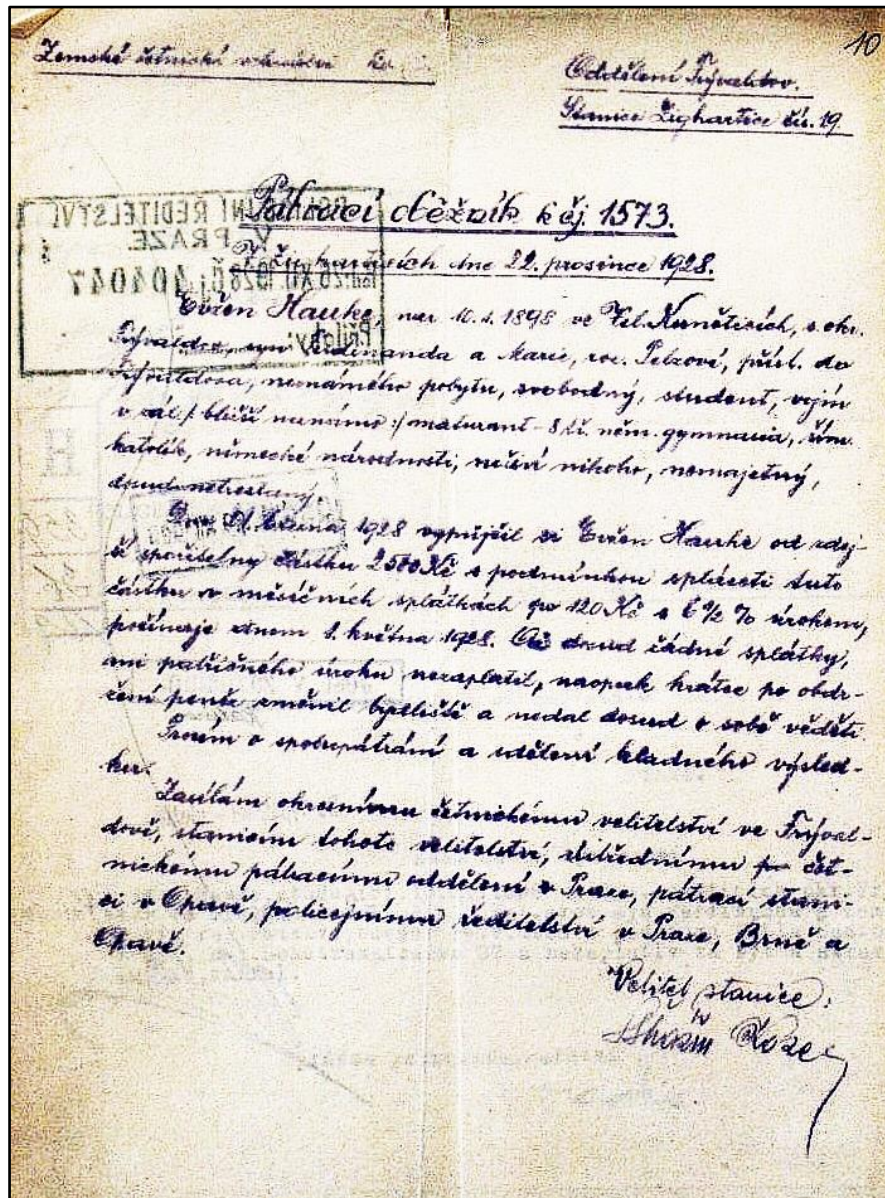 10
Zemské četnické velitelství
Oddělení Frývaldov.
Stanice Žighartice čís. 19.
Pátrací oběžník k čj. 1573.
POLICEJNÍ ŘEDITELSTVÍ
V PRAZE.
26.XII.1928 č.j. 404047
Přílohy:
dne 22. prosince 1928.
Evžen Hauke, nar. 10. 1. 1898 ve Vel. Kuněticích, s. okr.
Frývaldov, syn Ferdinanda a Marie, roz. Pelzové, přísl. do
Frývaldova, neznámého pobytu, svobodný, student, vojín
v zál. /: bližší neznámo :/ maturant - 8 tř. něm. gymnasia, řím.
katolík, německé národnosti, neživí nikoho, nemajetný,
dosud netrestaný.
Dne 21. března 1928 vypůjčil si Evžen Hauke od zdej-
ší spořitelny částku 2500 Kč s podmínkou spláceti tuto
částku v měsíčních splátkách po 120 Kč s 6 1/2 % úrokem,
počínaje dnem 1. května 1928. Ač dosud žádné splátky,
ani patřičného úroku nezaplatil, naopak krátce po obdr-
žení peněz změnil bydliště a nedal dosud o sobě věděti.
Prosím o spolupátrání a sdělení kladného výsled-
ku.
Zasílám okresnímu četnickému velitelství ve Frýval-
dově, stanicím tohoto velitelství, ústřednímu čet-
nickému pátracímu oddělení v Praze, pátrací stani-
ci v Opavě, policejnímu ředitelství v Praze, Brně a
Opavě.
Velitel stanice: